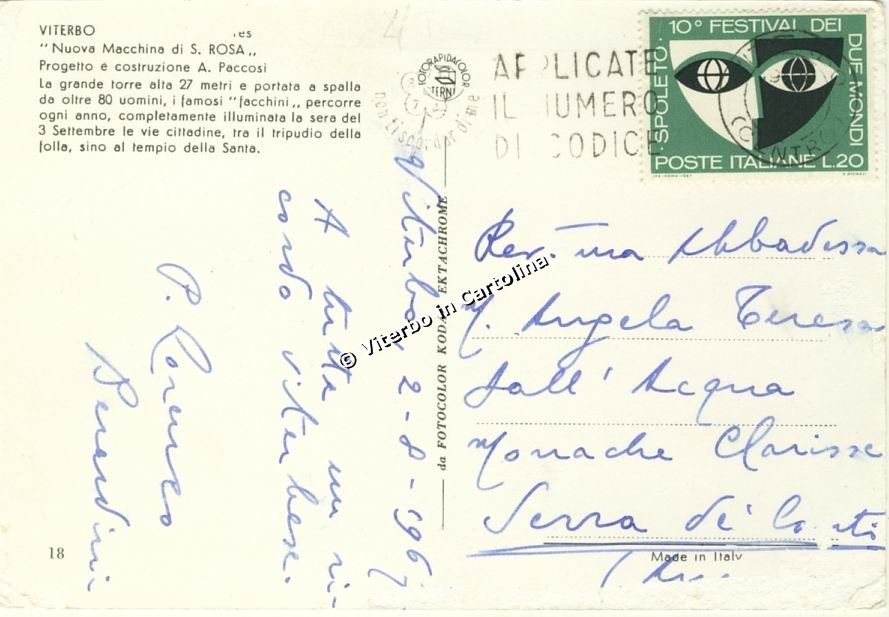 VITERBO
"Nuova Macchina di S. ROSA„
Progetto e costruzione A. Paccosi
La grande torre alta 27 metri e portata a spalla
da oltre 80 uomini, i famosi "facchini„ percorre
ogni anno, completamente illuminata la sera del
3 Settembre le vie cittadine, tra il tripudio della
folla, sino al tempio della Santa.
FOTORAPIDACOLOR
TERNI
non ti scordar di me
APPLICATE
IL NUMERO
DI CODICE
10° FESTIVAL DEI
DUE MONDI
SPOLETO
POSTE ITALIANE L.20
Viterbo, 2-8-1967
A tutte un ri-
cordo viterbese.
P. Lorenzo
da FOTOCOLOR KODAK EKTACHROME
© Viterbo in Cartolina
Rev.ma Abbadessa
M. Angela Teresa
dall' Acqua
Monache Clarisse
Serra de' Conti
18
Made in Italy